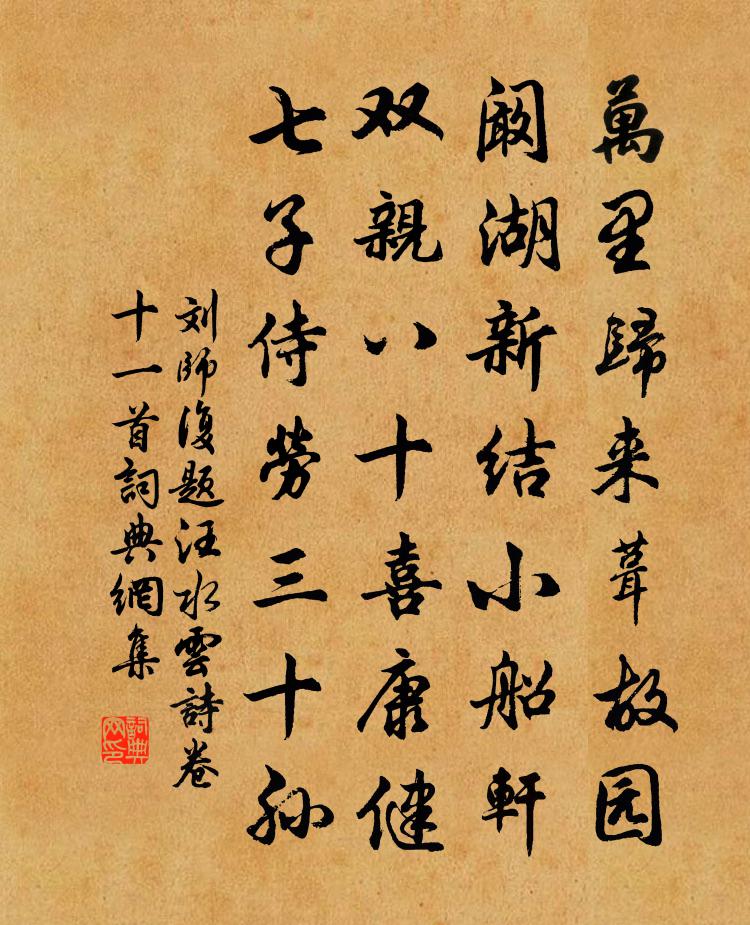 萬里歸来葺故园
阚湖新结小船軒
双親八十喜康健
七子侍勞三十孙
刘師復题汪水雲詩卷
十一首詞典網集
詞典网印